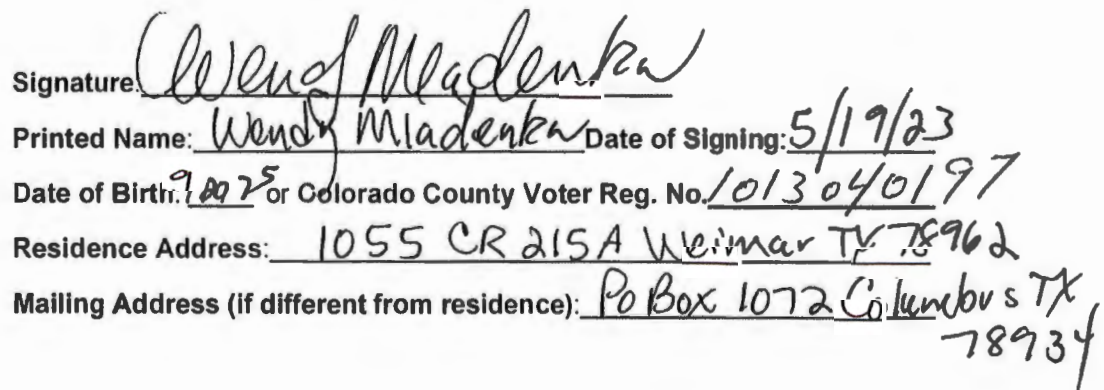 Signature: Wendy Mladenka
Printed Name: Wendy Mladenka Date of Signing: 5/19/23
Date of Birth: or Colorado County Voter Reg. No. 1013040197
Residence Address: 1055 CR 215A Weimar TX 78962
Mailing Address (if different from residence): Po Box 1072 Columbus TX
78934